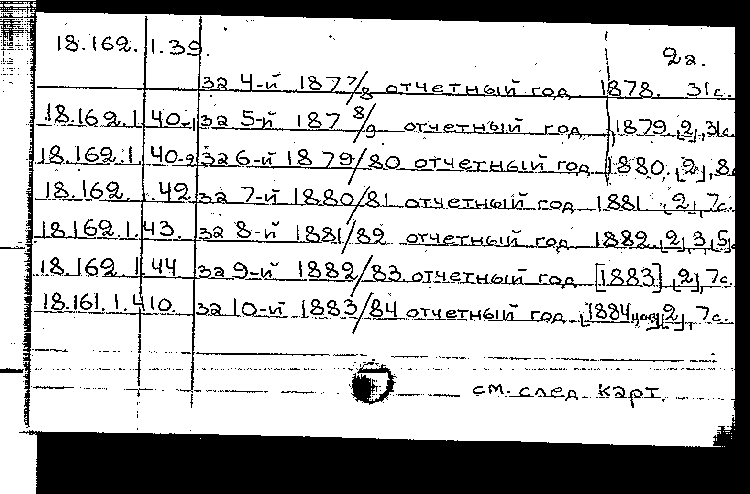 18.162.1.39. 2а.
за 4-й 1877/8 отчетный год 1878. 31с.
18.162.1.40-1 за 5-й 1878/9 отчетный год 1879. [2], 31с.
18.162.1.40-2 за 6-й 1879/80 отчетный год 1880. [2], 8с
18.162.1.42 за 7-й 1880/81 отчетный год 1881 [2], 7с.
18.162.1.43. за 8-й 1881/82 отчетный год 1882. [2], 3, [5]с
18.162.1.44 за 9-й 1882/83 отчетный год [1883] [2], 7с.
18.161.1.410. за 10-й 1883/84 отчетный год [1884 [2], 7с.
см. след. карт.